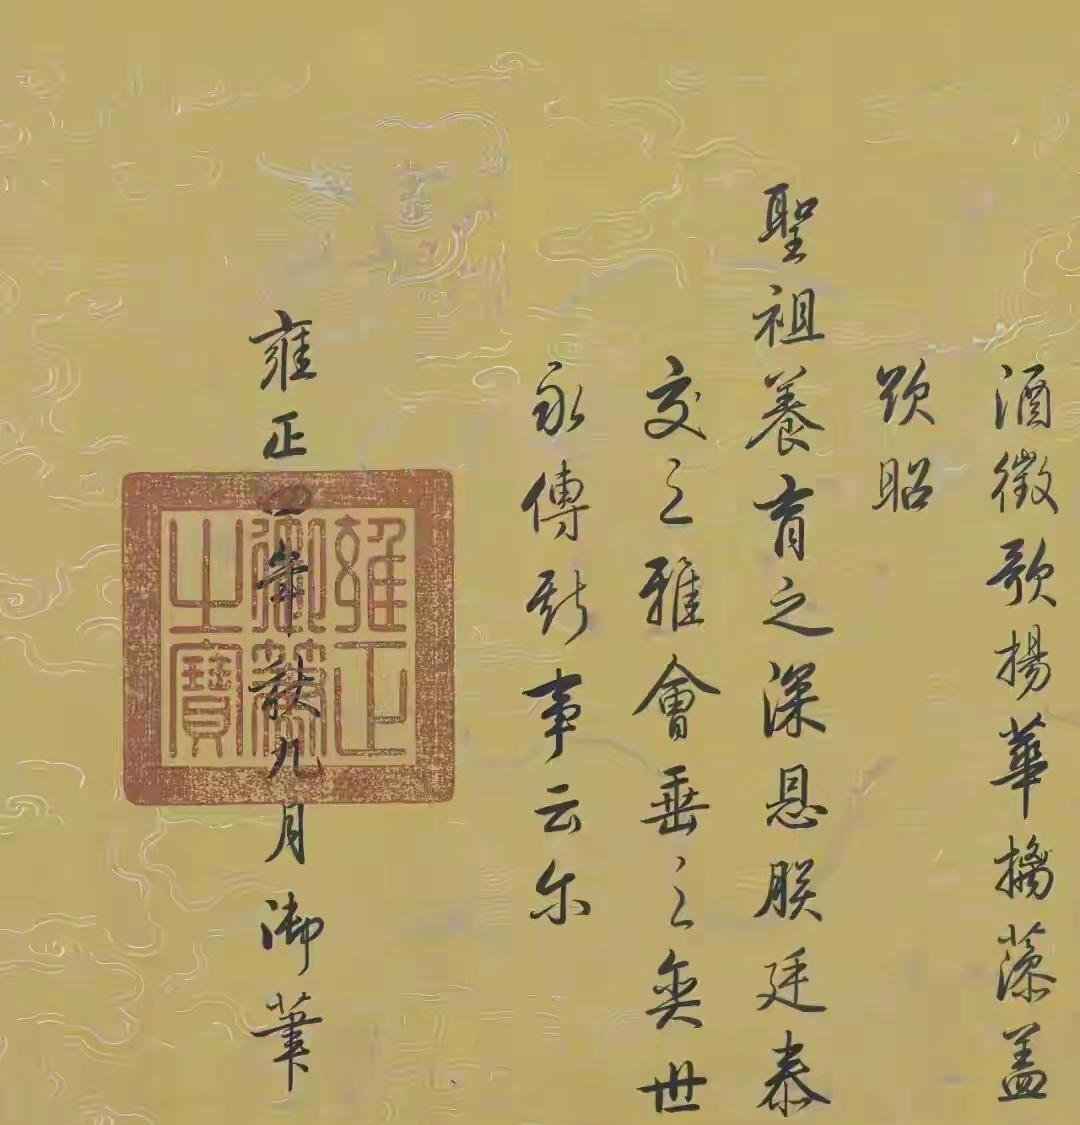 酒徵歌揚華摛藻蓋
欲昭
聖祖養育之深恩朕廷泰
交之雅會垂之奕世
永傳斯事云尔
雍正四年秋九月御筆
雍正
御筆
之寶